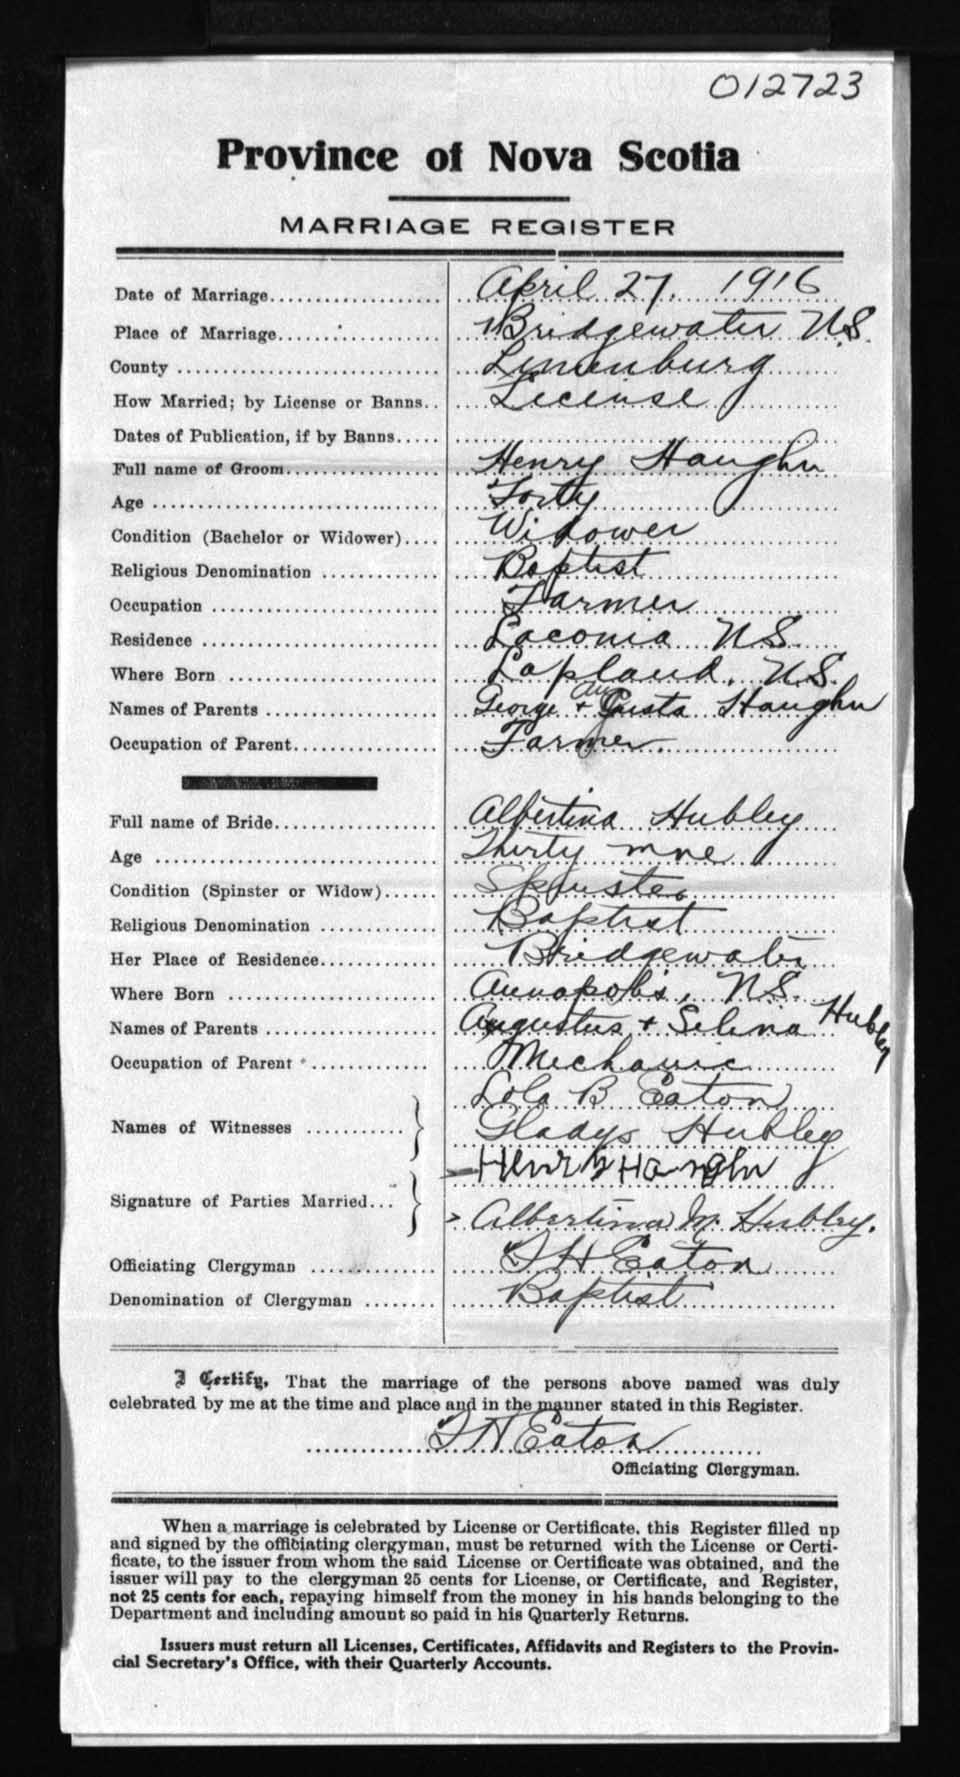 012723
Province of Nova Scotia
MARRIAGE REGISTER
Date of Marriage.................... April 27. 1916
Place of Marriage.................. Bridgewater N.S.
County ............................ Lunenburg
How Married; by License or Banns.. License
Dates of Publication, if by Banns.....
Full name of Groom.................. Henry Haughn
Age ............................... Forty
Condition (Bachelor or Widower).... Widower
Religious Denomination ............. Baptist
Occupation ......................... Farmer
Residence .......................... Laconia N.S.
Where Born ........................ Lapland, N.S.
Names of Parents ................... George & Augusta Haughn
Occupation of Parent................ Farmer.
Full name of Bride.................. Albertina Hubley
Age ............................... Thirty nine
Condition (Spinster or Widow)...... Spinster
Religious Denomination ............. Baptist
Her Place of Residence............. Bridgewater
Where Born ........................ Annapolis, N.S.
Names of Parents ................... Augustus + Selina Hubley
Occupation of Parent .............. Mechanic
Lola B Eaton
Names of Witnesses ........... Gladys Hubley
Henry Haughn
Signature of Parties Married...
Albertina M. Hubley.
Officiating Clergyman .............. Eaton
Denomination of Clergyman ........ Baptist
I Certify, That the marriage of the persons above named was duly
celebrated by me at the time and place and in the manner stated in this Register.
Eaton
Officiating Clergyman.
When a marriage is celebrated by License or Certificate, this Register filled up
and signed by the officiating clergyman, must be returned with the License or Certi-
ficate, to the issuer from whom the said License or Certificate was obtained, and the
issuer will pay to the clergyman 25 cents for License, or Certificate, and Register,
not 25 cents for each, repaying himself from the money in his hands belonging to the
Department and including amount so paid in his Quarterly Returns.
Issuers must return all Licenses, Certificates, Affidavits and Registers to the Provin-
cial Secretary's Office, with their Quarterly Accounts.